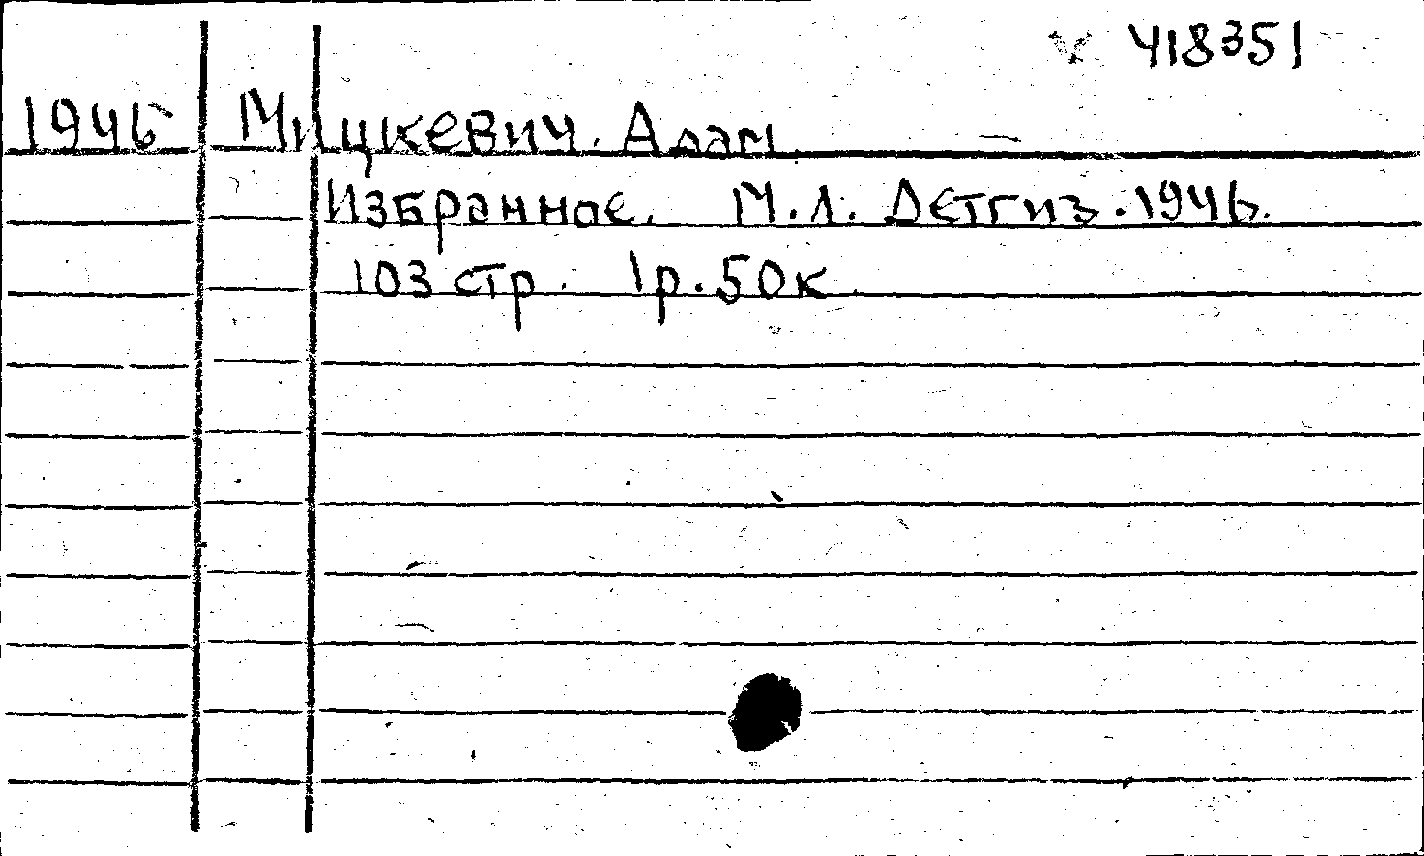 418351
1946 Мицкевич. Адам.
Избранное. М.Л. Детгиз. 1946.
103 стр. 1р.50к.